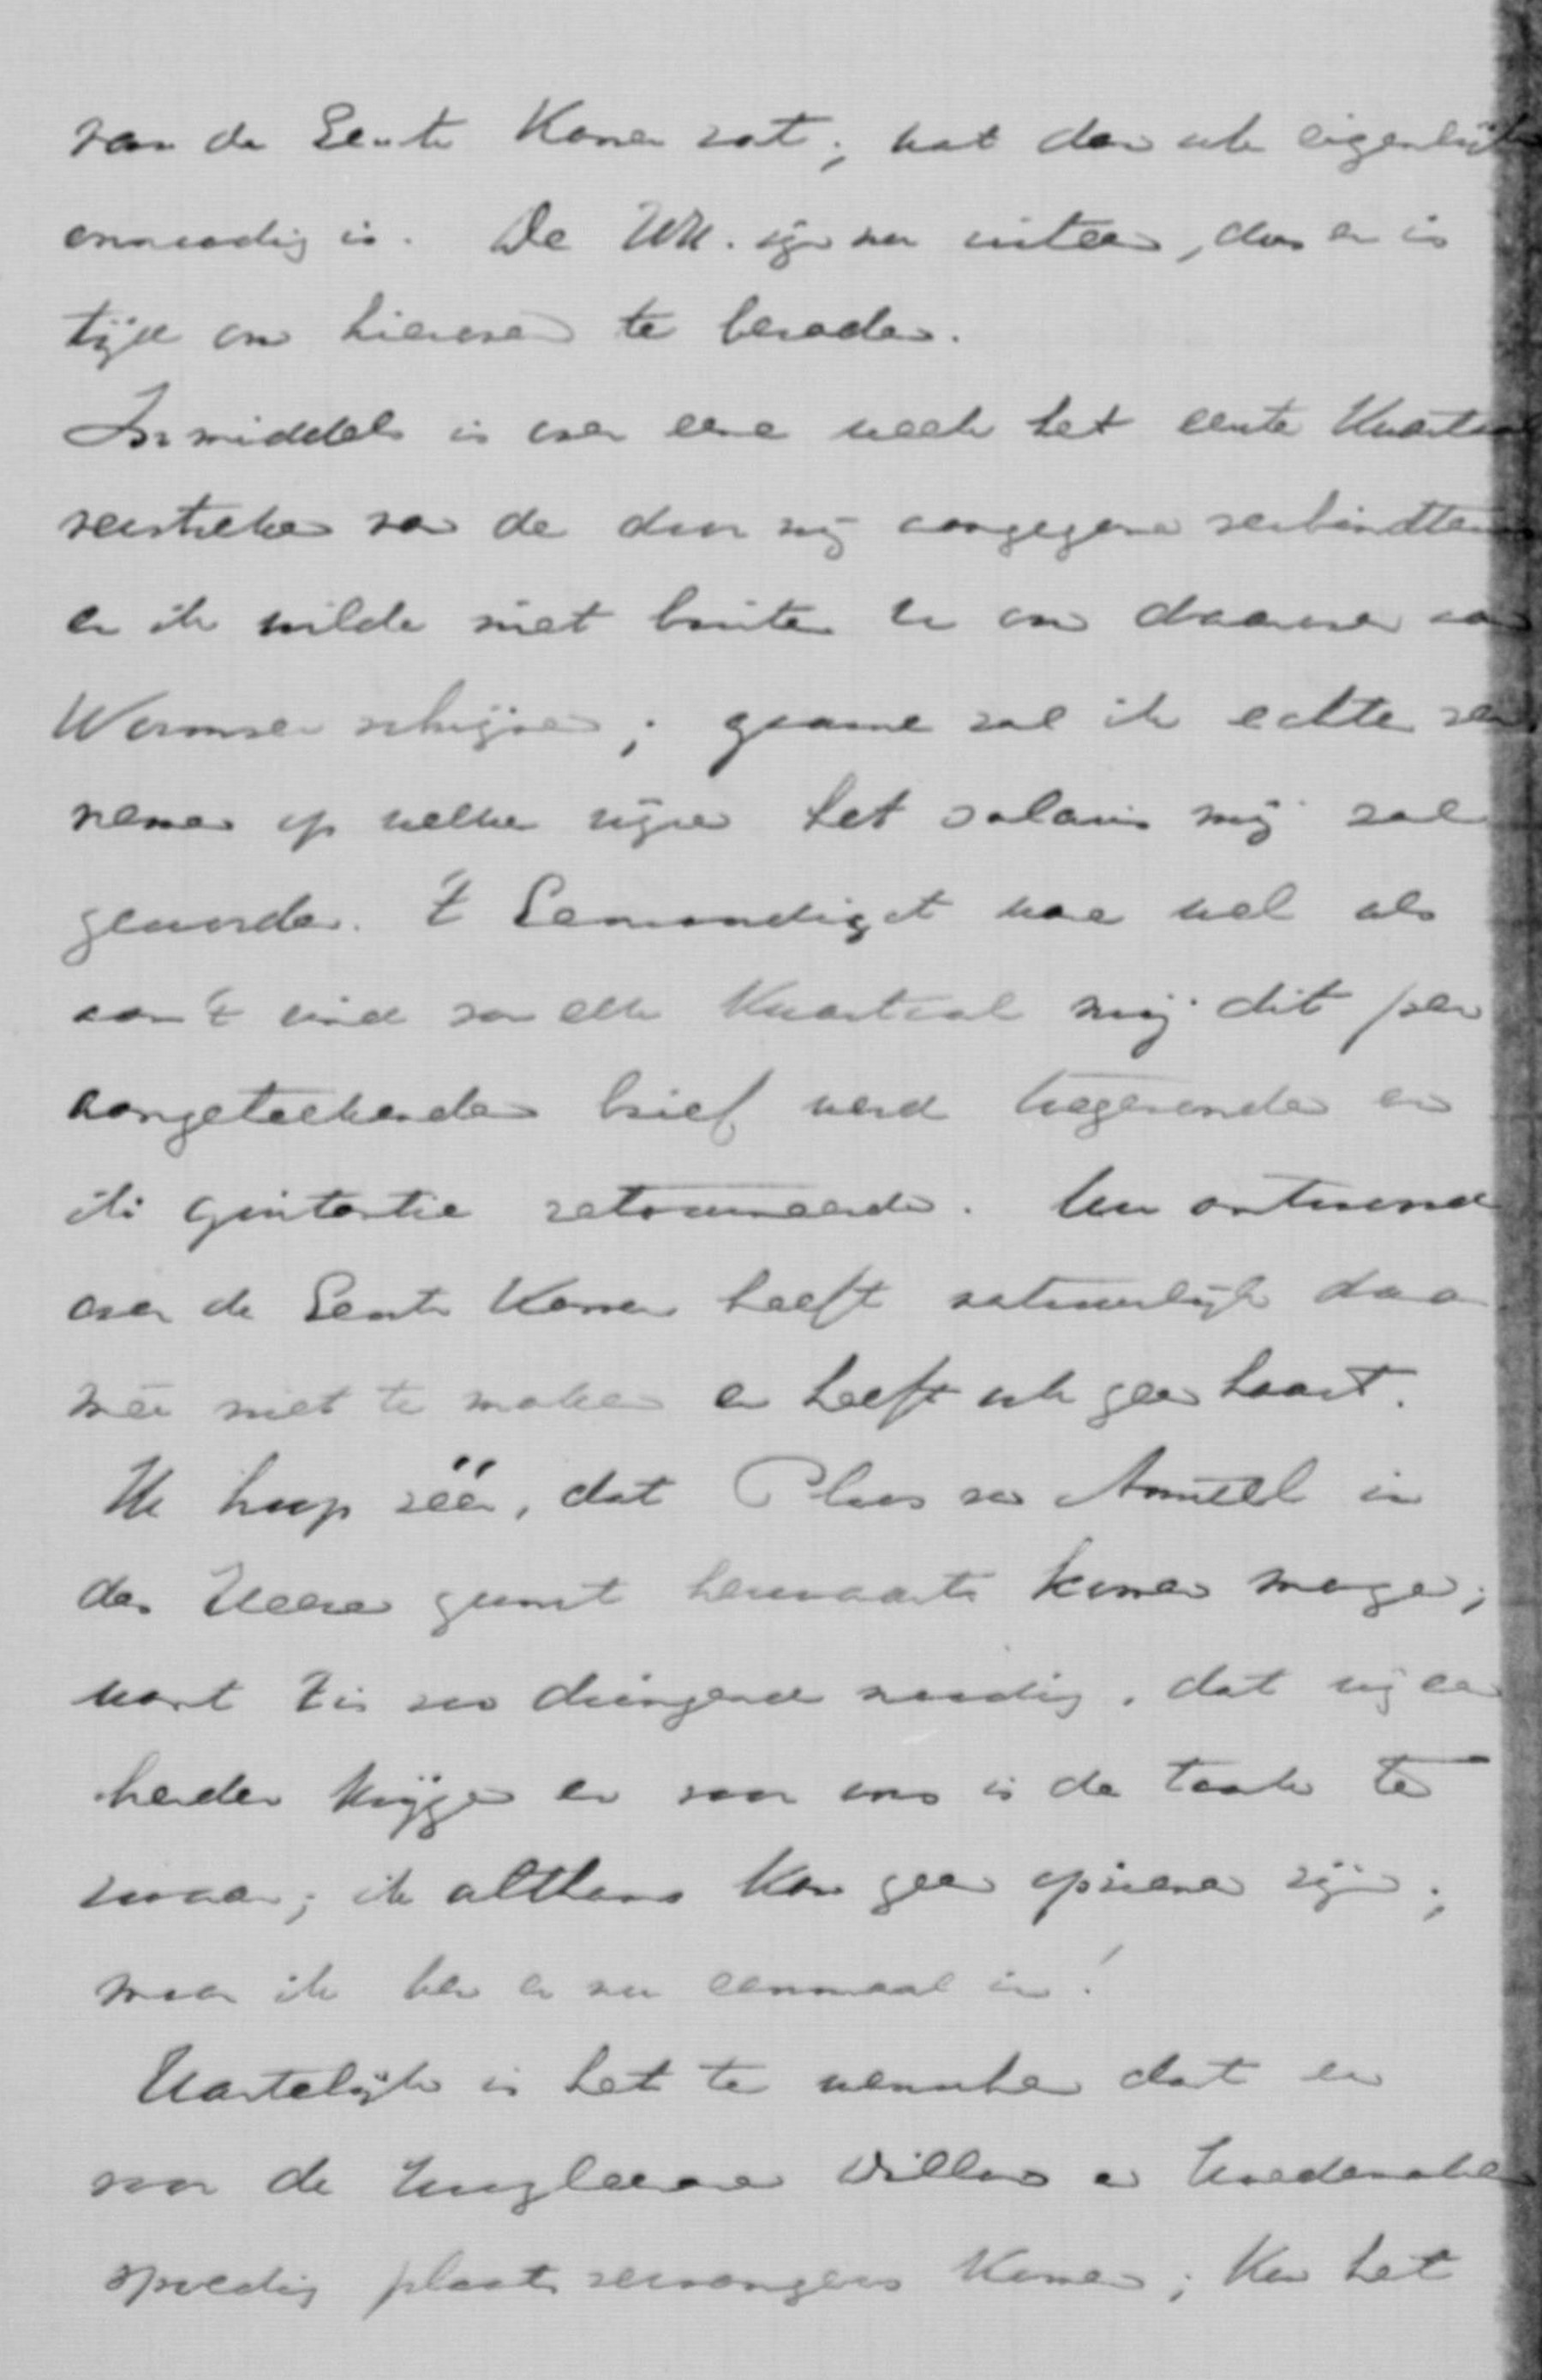 van de Eerste Kamer zat; wat dan ook eigenlijk
onnoodig is. De HH. zijn nu uiteen, dus er is
tijd om hierover te beraden.
Inmiddels is over eene week het eerste Kwartaal
verstreken van de door mij aangegane verbindtenis
en ik wilde niet buiten U om daarover aan
Wormser schrijven; gaarne zal ik echter ver
nemen op welke wijze het salaris mij zal
geworden. 't Eenvoudigst ware wel als
aan 't eind van elk Kwartaal mij dit per
aangeteekenden brief werd toegezonden en
ik quitantie retourneerde. Uw antwoord
over de Eerste Kamer heeft natuurlijk daar
meê niet te maken en heeft ook geen haast.
Ik hoop zéér, dat Ploos van Amstel in
des Heeren gunst herwaarts komen moge;
want 't is zoo dringend noodig, dat wij een
herder krijgen en voor ons is de taak te
zwaar; ik althans kan geen opziener zijn;
maar ik ben er nu eenmaal in!
Hartelijk is het te wenschen dat er
voor de Hoogleeraren Dilloo en Hoedemaker
spoedig plaatsvervangers komen; Kan het